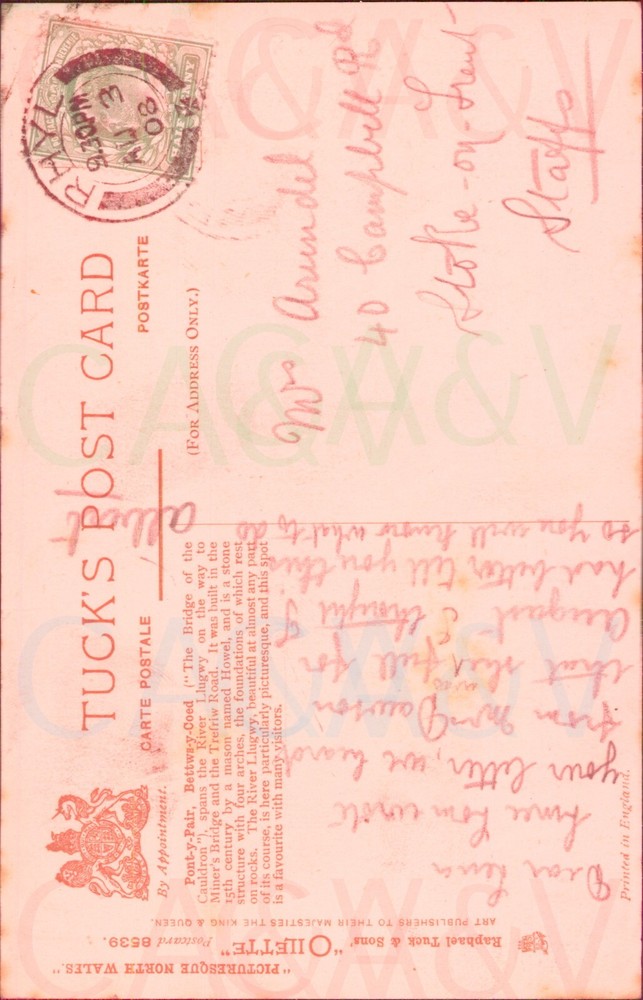 "PICTURESQUE NORTH WALES."
Raphael Tuck & Sons' "OILETTE" Postcard 8539.
ART PUBLISHERS TO THEIR MAJESTIES THE KING & QUEEN.
By Appointment.
TUCK'S POST CARD
CARTE POSTALE
POSTKARTE
(FOR ADDRESS ONLY.)
Pont-y-Pair, Bettws-y-Coed ("The Bridge of the
Cauldron"), spans the River Llugwy on the way to
Miner's Bridge and the Trefriw Road. It was built in the
15th century by a mason named Howel, and is a stone
structure with four arches, the foundations of which rest
on rocks. The River Llugwy, beautiful at almost any part
of its course, is here particularly picturesque, and this spot
is a favourite with many visitors.
Printed in England.
RHYL
9.30PM
AU 3
08
Mrs Arundel
40 Campbell Rd
Stoke-on-Trent
Staffs
Dear Lena
since Tom wrote
your letter, we heard
from Mrs Dawson
that she was full for
August & thought I
had better tell you this
so you will know what to do
CA&V
CA&V
CA&V
CA&V
CA&V
CA&V
CA&V
CA&V